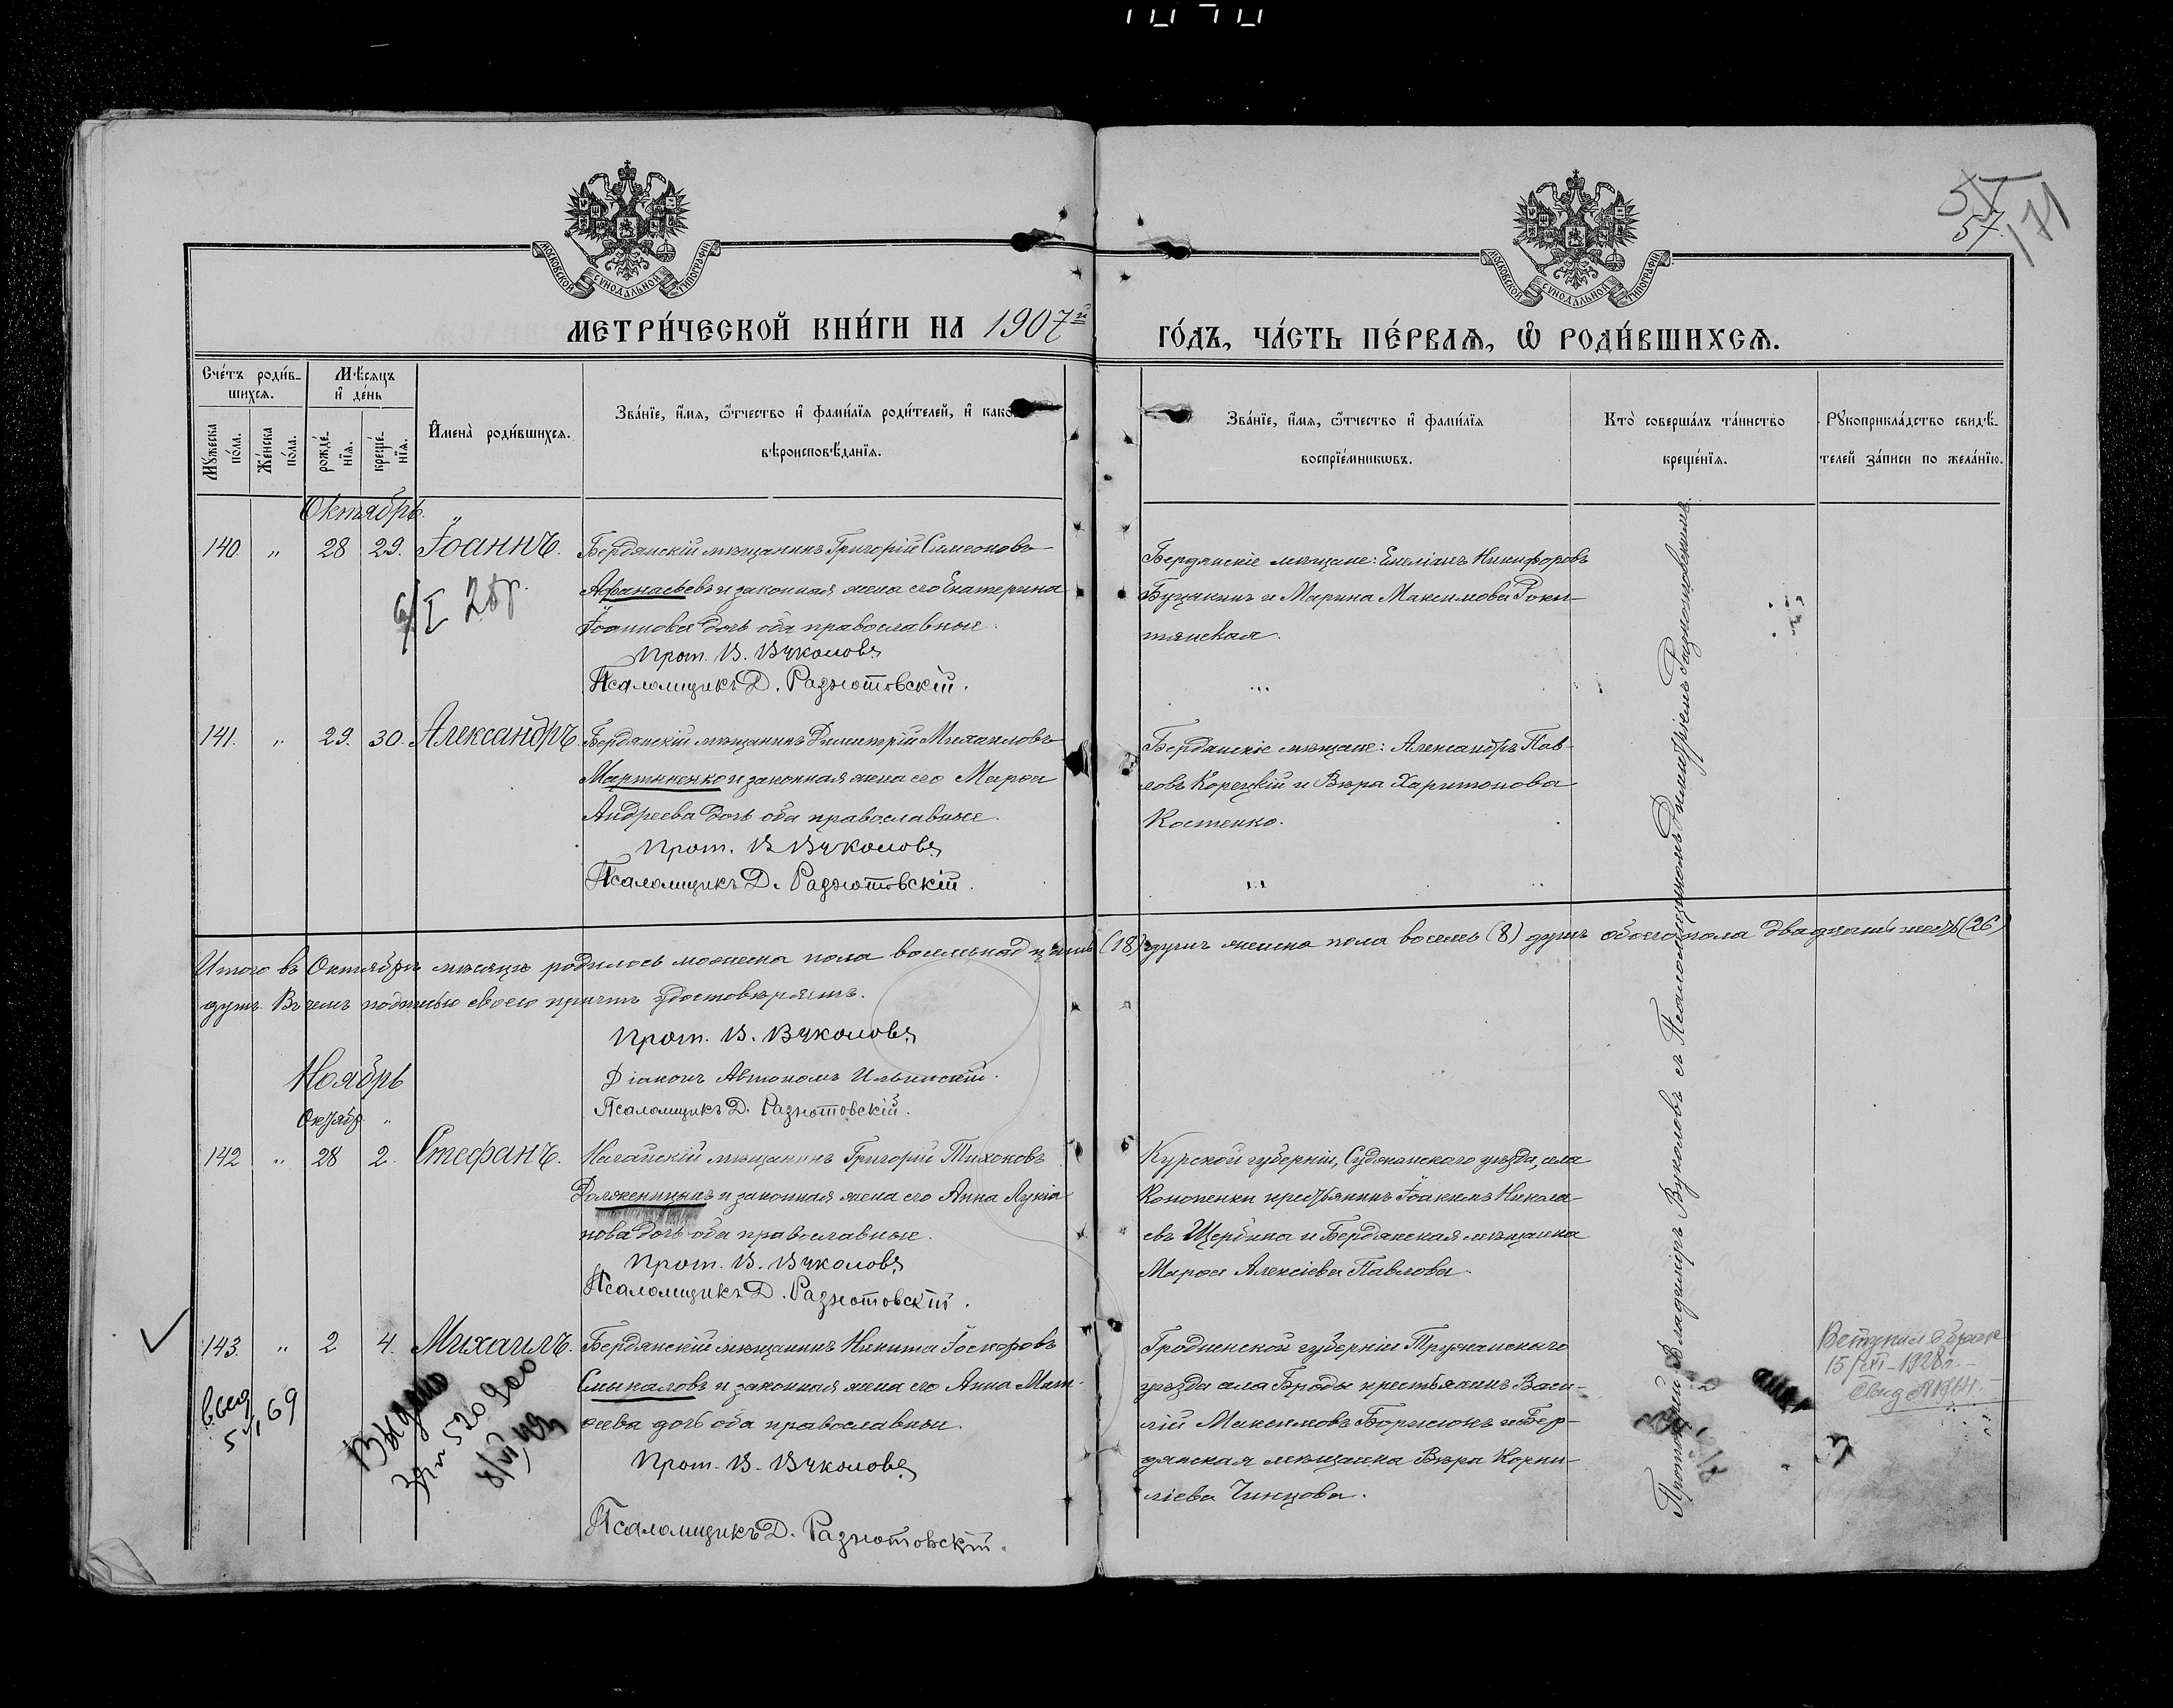 57
57.
171
МОСКОВСКОЙ СѴНОДАЛЬНОЙ ТИПОГРАФІИ
МОСКОВСКОЙ СѴНОДАЛЬНОЙ ТИПОГРАФІИ
МЕТРИ́ЧЕСКОЙ КНИ́ГИ НА 1907й ГО́ДЪ, ЧА́СТЬ ПЕ́РВАѦ, Ѡ҆ РОДИ́ВШИХСѦ.
Сче́тъ роди́в-
шихсѧ.
Мꙋжеска по́ла.
Же́нска по́ла.
Мѣ́сѧцъ
и҆ де́нь
рожде́-
нїѧ.
креще́-
нїѧ.
И҆мена̀ роди́вшихсѧ.
Зва́нїе, и҆́мѧ, ѻ҆́тчество и҆ фами́лїѧ роди́телей, и҆ како́
вѣроисповѣ́данїѧ.
Зва́нїе, и҆́мѧ, ѻ҆́тчество и҆ фами́лїѧ
воспрїе́мникѡвъ.
Кто̀ соверша́лъ та́инство
креще́нїѧ.
Рꙋкоприкла́дство свидѣ́-
телей за́писи по жела́нїю.
Октябрь.
140. " 28 29. Іоаннъ.
Бердянскій мѣщанинъ Григорій Симеоновъ
Афанасьевъ и законная жена его Екатерина
Іоаннова дочь оба православные.
Прот. В. Вуколовъ
Псаломщикъ Д. Разнотовскій.
Бердянскіе мѣщане: Емеліанъ Никифоровъ
Буцакинъ и Марина Максимова Роки-
тянская.
6/I 28г.
141. " 29. 30. Александръ.
Бердянскій мѣщанинъ Димитрій Михаиловъ
Мартыненко и законная жена его Марѳа
Андреева дочь оба православные.
Прот. В Вуколовъ
Псаломщикъ Д. Разнотовскій.
Бердянскіе мѣщане: Александръ Пав-
ловъ Корецкій и Вѣра Харитонова
Костенко.
Итого въ Октябрѣ мѣсяцѣ родилось можеска пола восемьнадцать (18) душъ женска пола восемь (8) душъ обоего пола двадцать шесть (26)
душъ. Въ чемъ подписью своею причтъ удостовѣряетъ.
Прот. В. Вуколовъ
Діаконъ Автономъ Ильинскій.
Псаломщикъ Д. Разнотовскій.
Ноябрь
Октябр. "
142 " 28 2. Стефанъ.
Ногайскій мѣщанинъ Григорій Тихоновъ
Долженицынъ и законная жена его Анна Лукіа-
нова дочь оба православные.
Прот. В. Вуколовъ
Псаломщикъ Д. Разнотовскій.
Курской губерніи, Суджанскаго уѣзда, села
Конопенки крестьянинъ Іоакимъ Никола-
евъ Щербина и Бердянская мѣщанка
Марѳа Алексіева Павлова.
143. " 2 4. Михаилъ.
Бердянскій мѣщанинъ Никита
Смыкаловъ и законная жена его Анна Мат-
ѳеева дочь оба православны
Прот. В. Вуколовъ
Псаломщикъ Д. Разнотовскій.
Гродненской губерніи Пружанскаго
уѣзда села Броды крестьянинъ Васи-
лій Максимовъ Борисюкъ и Бер-
дянская мѣщанка Вѣра Корни-
ліева Чинцова.
69
Выдано
520900
Протоіерей Владиміръ Вуколовъ съ Псаломщикомъ Димитріемъ Разнотовскимъ.
Вступил в брак
15/VI-1928г.